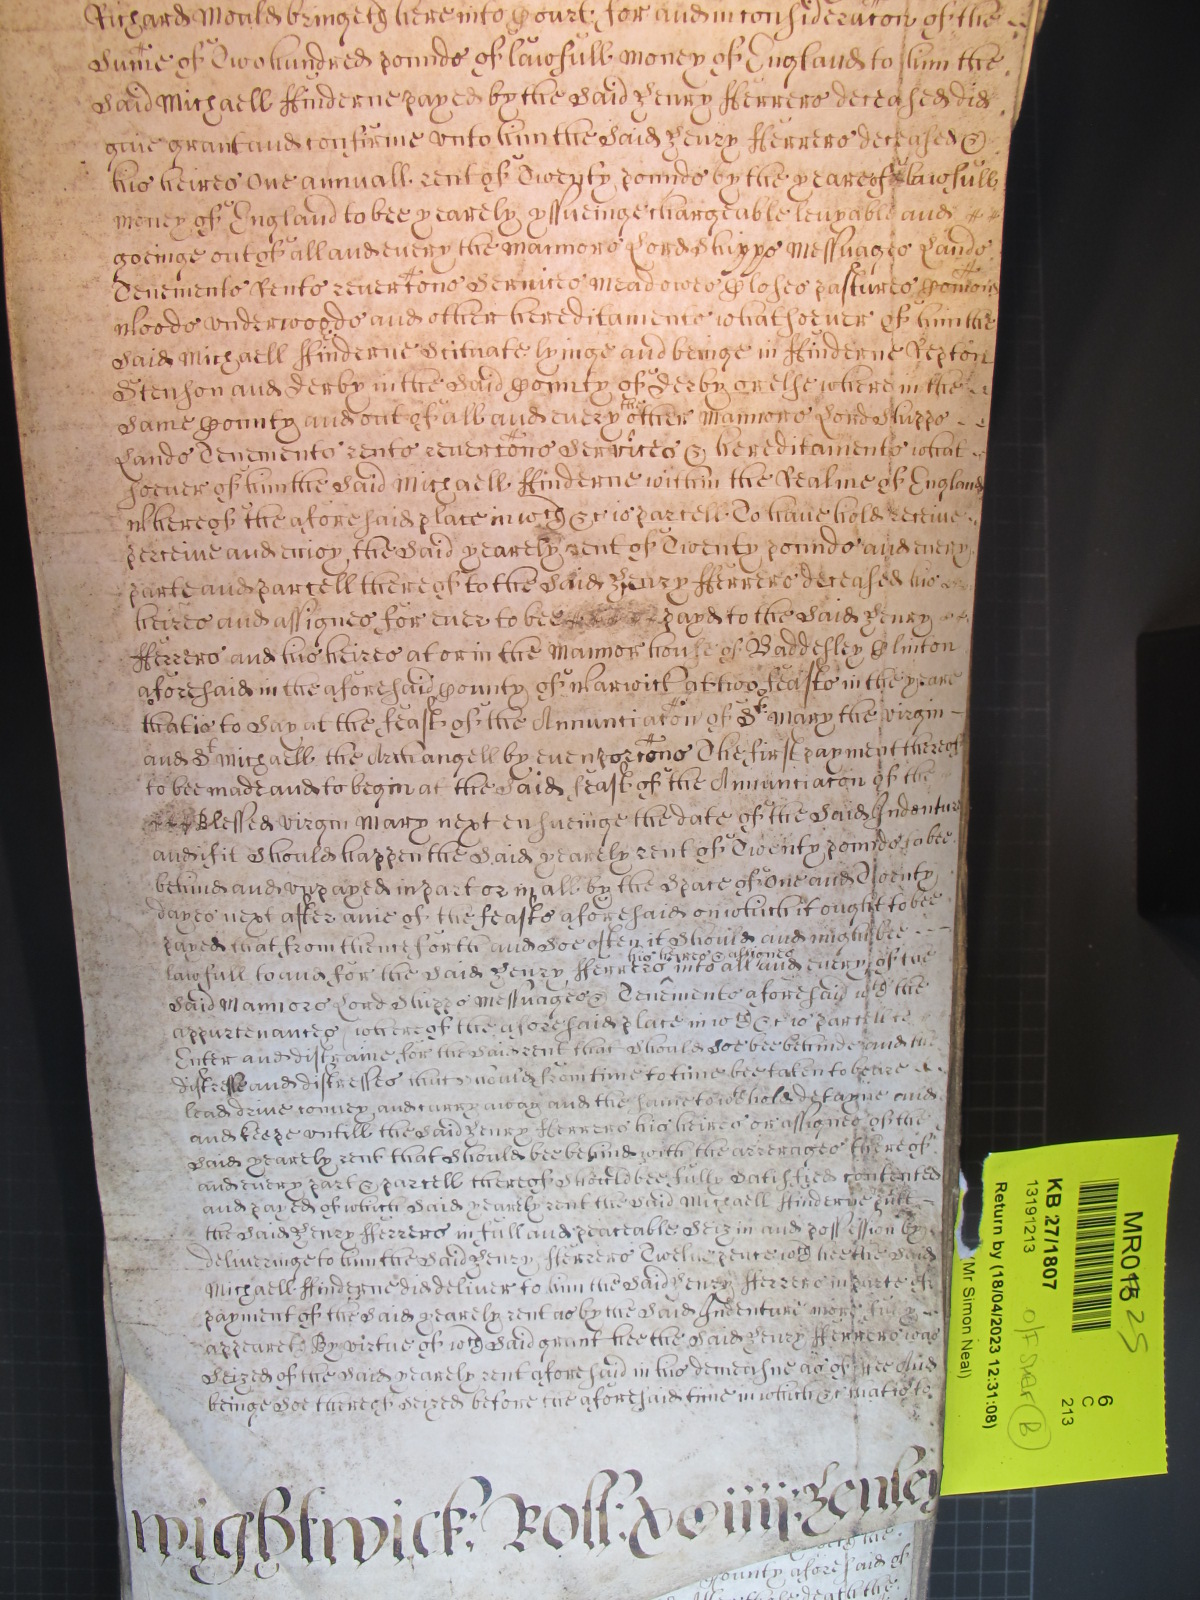 Richard Mould bringeth here into Court for and in consideracon of the
Sume of Two hundred pounds of lawfull money of England to him the
Said Michaell ffinderne payed by the Said Henry fferrers deceased did
give grant and confirme unto him the Said Henry fferrers deceased &
his heires One annuall rent of Twenty pounds by the yeare of lawfull
money of England to bee yearely yssueinge chargeable levyable and
goeinge out of all and every the Mannors Lordshipps Messuages Lands
Tenements Rents revercons Services Meadowes Closes pastures Comons
Woods underwoods and other hereditaments whatsoever of him the
Said Michaell ffinderne Scituate lyinge and beinge in ffinderne Repton
Stenson and Derby in the Said County of Derby or else where in the
Same County and out of all and every the other Mannors Lordshipps
Lands Tenements rents revercons Services & hereditaments what
soever of him the Said Michaell ffinderne within the Realme of England
Whereof the aforesaid place in wch &c is parcell To have hold receive
perceive and enioy the Said yearely rent of Twenty pounds and every
parte and parcell thereof to the Said Henry fferrers deceased his
heires and assignes for ever to bee payd to the Said Henry
fferrers and his heires at or in the Mannor house of Baddesley Clinton
aforesaid in the aforesaid County of Warwick at two feasts in the yeare
that is to Say at the feast of the Annunciacon of St Mary the virgin
and St Michaell the Archangell by even porcons The first payment thereof
to bee made and to begin at the Said feast of the Annunciacon of the
Blessed virgin Mary next ensueinge the date of the Said Indenture
and if it Should happen the Said yearely rent of Twenty pounds to bee
behind and unpayed in part or in all by the Space of One and Twenty
dayes next after anie of the feasts aforesaid on which it ought to bee
payed that from thence forth and Soe often it Should and might bee
lawfull to and for the Said Henry fferrers his heires & assignes into all and every of the
Said Mannors Lordshipps Messuages & Tenements aforesaid wth the
appurtenances whereof the aforesaid place in wch &c is parcell to
Enter and distraine for the Said rent that Should Soe bee behinde and the
distresse and distresses that Should from time to time bee taken to beare
lead drive convey and carry away and the Same to withold detayne
and keepe untill the Said Henry fferrers his heires or assignes of the
Said yearely rent that Should bee behind with the arrerages thereof
and every part & parcell thereof Should bee fully Satisfied contented
and payed of which Said yearely rent the Said Michaell ffinderne putt
the Said Henry fferrers in full and peaceable Seizin and possession by
deliveringe to him the Said Henry fferrers Twelve pence wch hee the Said
Michaell ffinderne did deliver to him the Said Henry fferrers in parte of
payment of the Said yearely rent as by the Said Indenture more fully
appeareth By virtue of wch Said grant hee the Said Henry fferrers was
Seized of the Said yearely rent aforesaid in his demeasne as of fee And
beinge Soe thereof Seized before the aforesaid time in which &c that is to
Wightwick: Roll: Henley
County aforesaid of
MR01 25
6
C
213
KB 27/1807
13191213
Return by (18/04/2023 12:31:08)
(Mr Simon Neal)
B